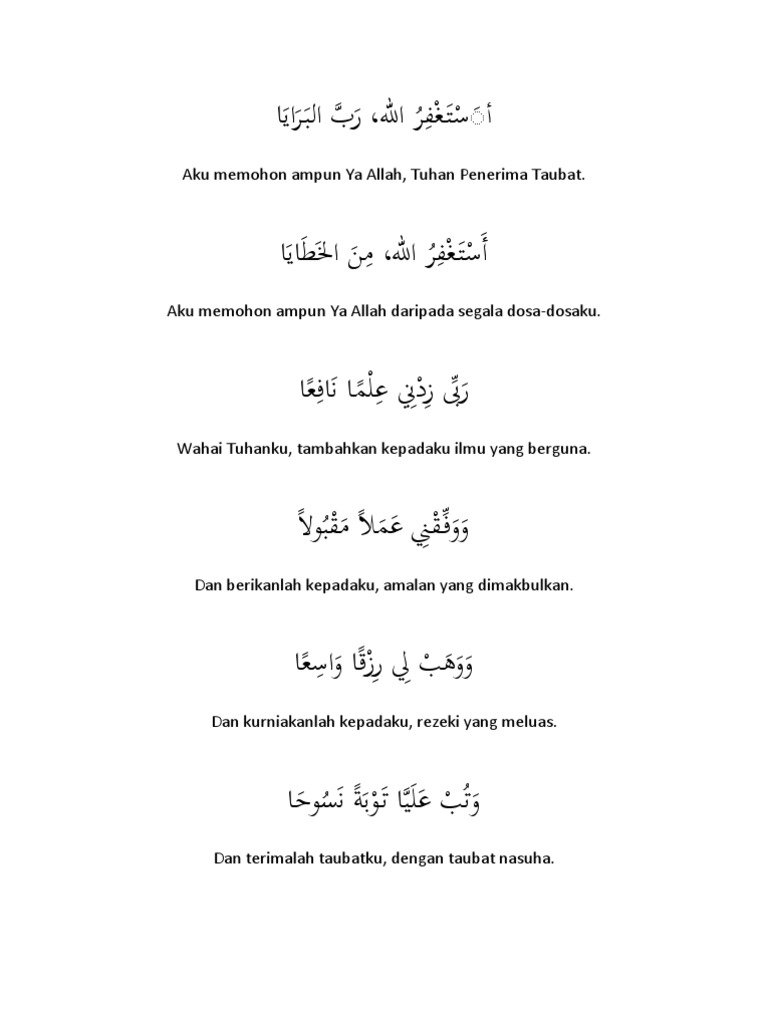 أَسْتَغْفِرُ الله، رَبَّ البَرَايَا
Aku memohon ampun Ya Allah, Tuhan Penerima Taubat.
أَسْتَغْفِرُ الله، مِنَ الخَطَايَا
Aku memohon ampun Ya Allah daripada segala dosa-dosaku.
رَبِّى زِدْنِي عِلْمًا نَافِعًا
Wahai Tuhanku, tambahkan kepadaku ilmu yang berguna.
وَوَفِّقْنِي عَمَلاً مَقْبُولاً
Dan berikanlah kepadaku, amalan yang dimakbulkan.
وَوَهَبْ لِي رِزْقًا وَاسِعًا
Dan kurniakanlah kepadaku, rezeki yang meluas.
وَتُبْ عَلَيَّا تَوْبَةً نَسُوحَا
Dan terimalah taubatku, dengan taubat nasuha.